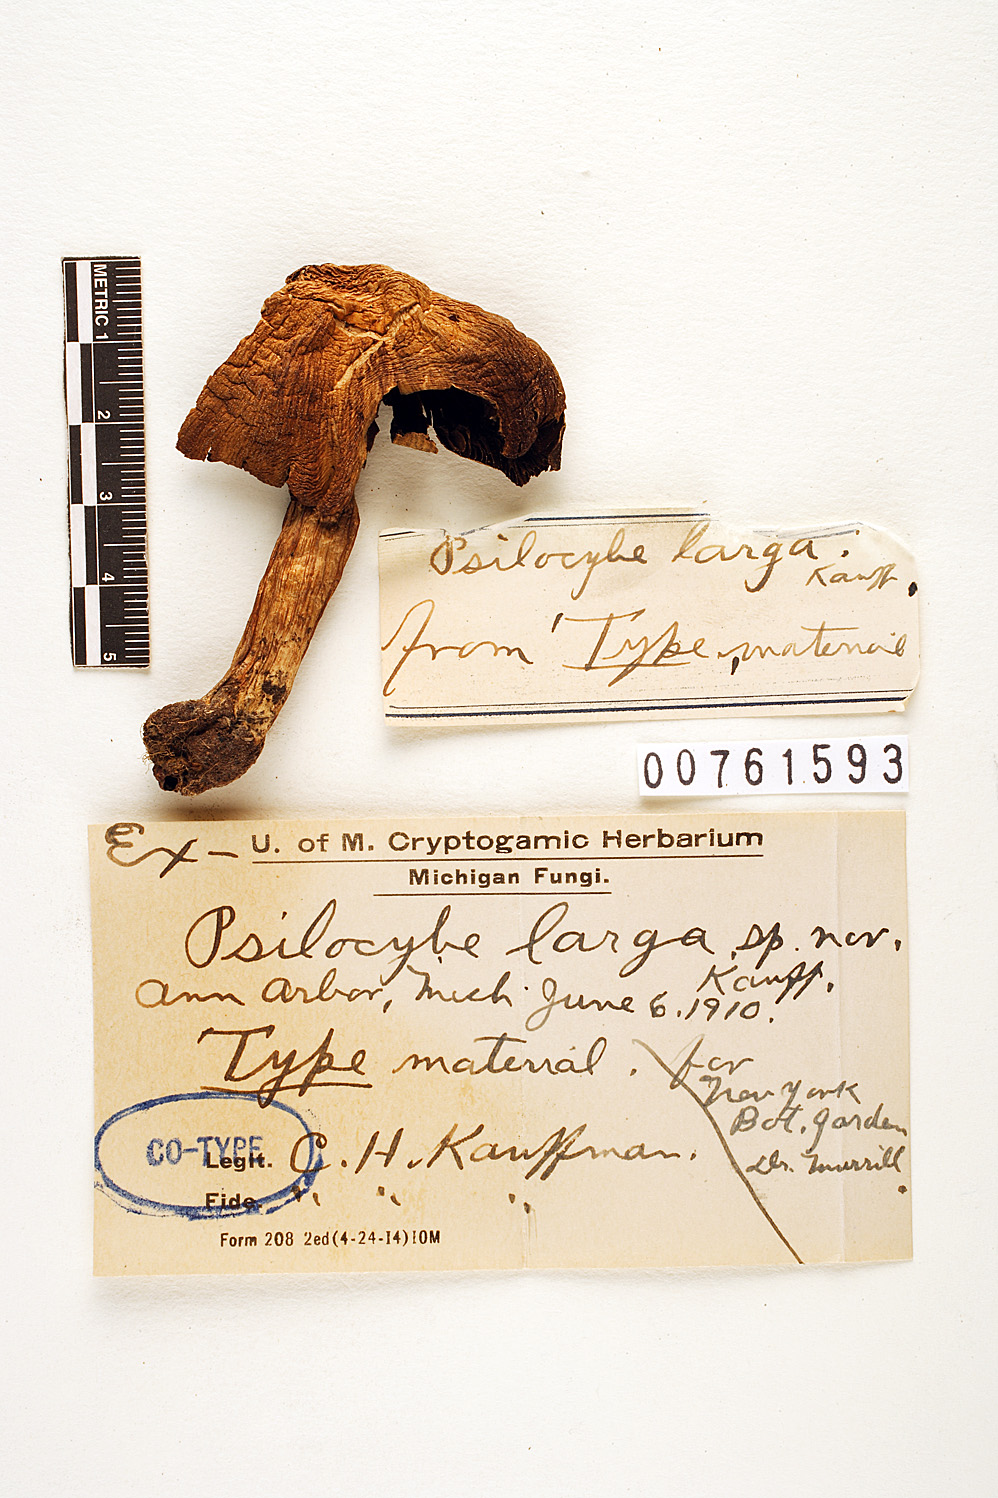 METRIC 1
2
3
4
5
Psilocybe larga.
Kauff.
from Type material
00761593
Ex- U. of M. Cryptogamic Herbarium
Michigan Fungi.
Psilocybe larga sp. nov.
Kauff.
Ann Arbor, Mich. June 6. 1910.
Type material. for
New York
Bot. Garden
Dr. Murrill
CO-TYPE
Legit. C. H. Kauffman.
Fide. " " "
Form 208 2ed(4-24-14)10M